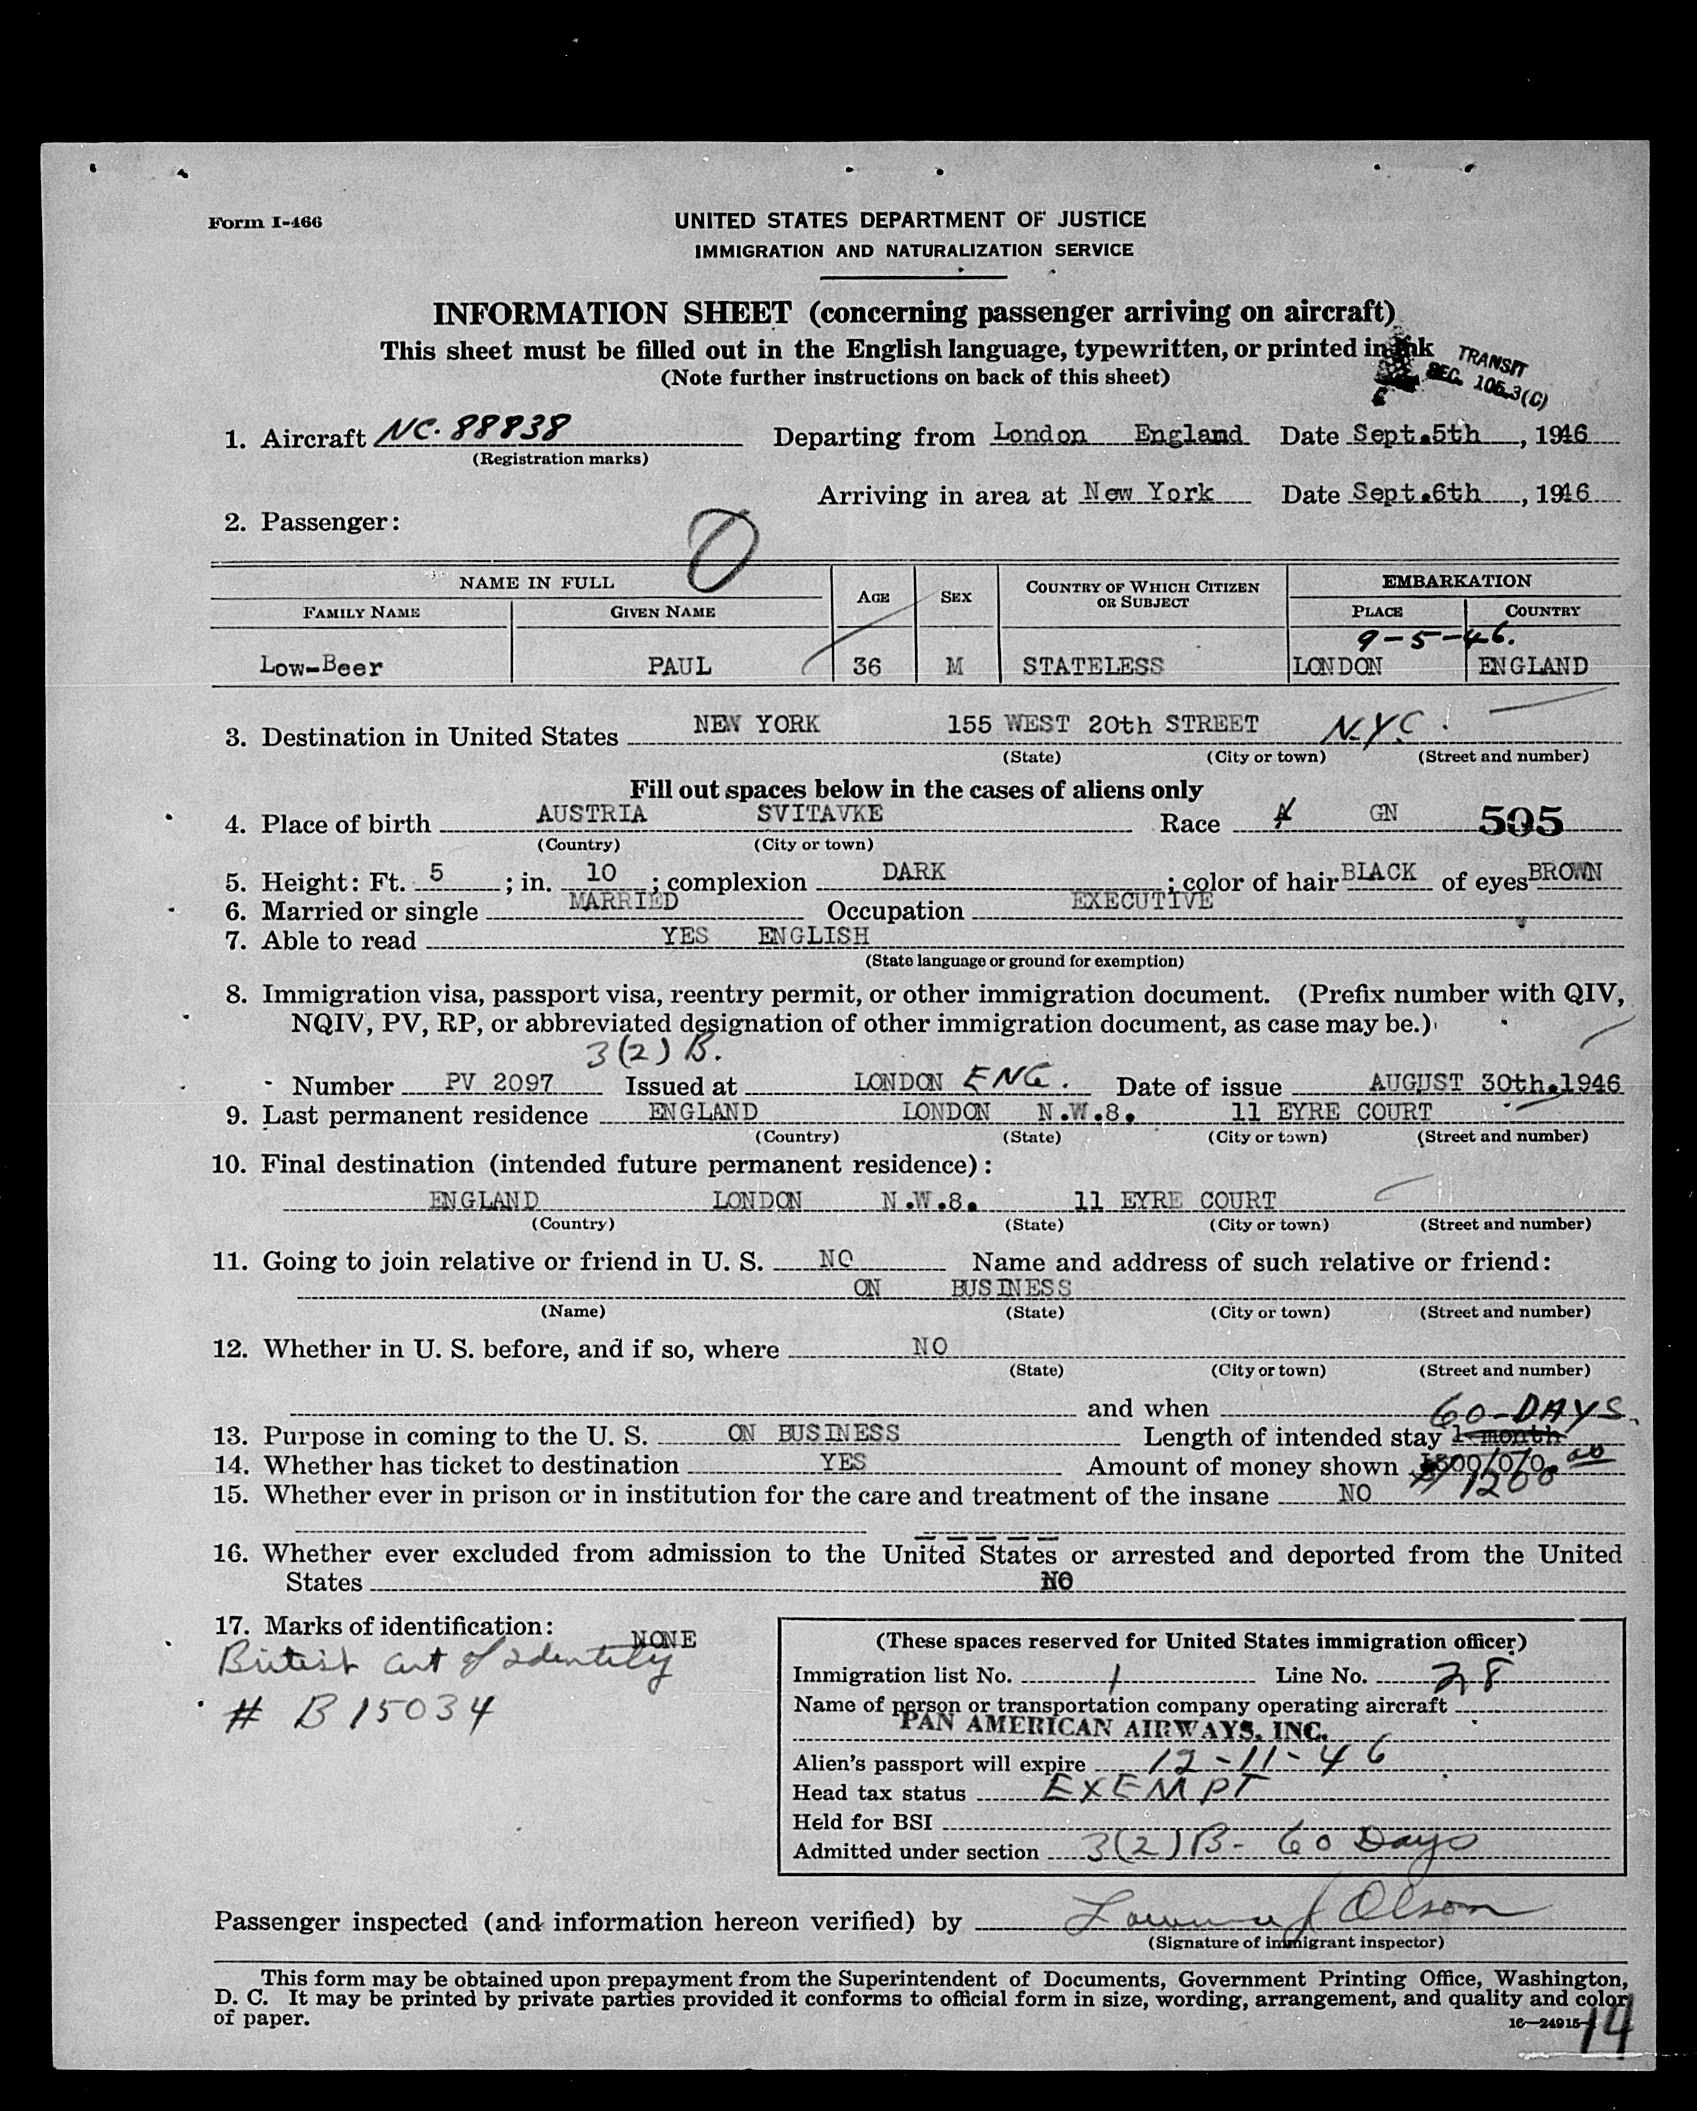 Form I-466
UNITED STATES DEPARTMENT OF JUSTICE
IMMIGRATION AND NATURALIZATION SERVICE
INFORMATION SHEET (concerning passenger arriving on aircraft)
This sheet must be filled out in the English language, typewritten, or printed in ink
(Note further instructions on back of this sheet)
TRANSIT
SEC. 105.3(C)
1. Aircraft NC. 88838 Departing from London England Date Sept.5th, 1946
(Registration marks)
Arriving in area at New York Date Sept.6th, 1946
2. Passenger:
NAME IN FULL AGE SEX COUNTRY OF WHICH CITIZEN OR SUBJECT EMBARKATION
FAMILY NAME GIVEN NAME PLACE COUNTRY
9-5-46.
Low-Beer PAUL 36 M STATELESS LONDON ENGLAND
3. Destination in United States NEW YORK 155 WEST 20th STREET N.Y.C.
(State) (City or town) (Street and number)
Fill out spaces below in the cases of aliens only
4. Place of birth AUSTRIA SVITAVKE Race GN 505
(Country) (City or town)
5. Height: Ft. 5; in. 10; complexion DARK; color of hair BLACK of eyes BROWN
6. Married or single MARRIED Occupation EXECUTIVE
7. Able to read YES ENGLISH
(State language or ground for exemption)
8. Immigration visa, passport visa, reentry permit, or other immigration document. (Prefix number with QIV,
NQIV, PV, RP, or abbreviated designation of other immigration document, as case may be.)
3(2) B.
Number PV 2097 Issued at LONDON ENG. Date of issue AUGUST 30th.1946
9. Last permanent residence ENGLAND LONDON N.W.8. 11 EYRE COURT
(Country) (State) (City or town) (Street and number)
10. Final destination (intended future permanent residence):
ENGLAND LONDON N.W.8. 11 EYRE COURT
(Country) (State) (City or town) (Street and number)
11. Going to join relative or friend in U. S. NO Name and address of such relative or friend:
ON BUSINESS
(Name) (State) (City or town) (Street and number)
12. Whether in U. S. before, and if so, where NO
(State) (City or town) (Street and number)
and when
60-DAYS.
13. Purpose in coming to the U. S. ON BUSINESS Length of intended stay 1 month
14. Whether has ticket to destination YES Amount of money shown 500/0/0.
$1200 00
15. Whether ever in prison or in institution for the care and treatment of the insane NO
16. Whether ever excluded from admission to the United States or arrested and deported from the United
States NO
17. Marks of identification: NONE
British Cert of Identity
# B 15034
(These spaces reserved for United States immigration officer)
Immigration list No. 1 Line No. 28
Name of person or transportation company operating aircraft
PAN AMERICAN AIRWAYS, INC.
Alien's passport will expire 12-11-46
Head tax status EXEMPT
Held for BSI
Admitted under section 3(2)B- 60 Days
Passenger inspected (and information hereon verified) by Lawrence J Olson
(Signature of immigrant inspector)
This form may be obtained upon prepayment from the Superintendent of Documents, Government Printing Office, Washington,
D. C. It may be printed by private parties provided it conforms to official form in size, wording, arrangement, and quality and color
of paper.
16—24915-1
14